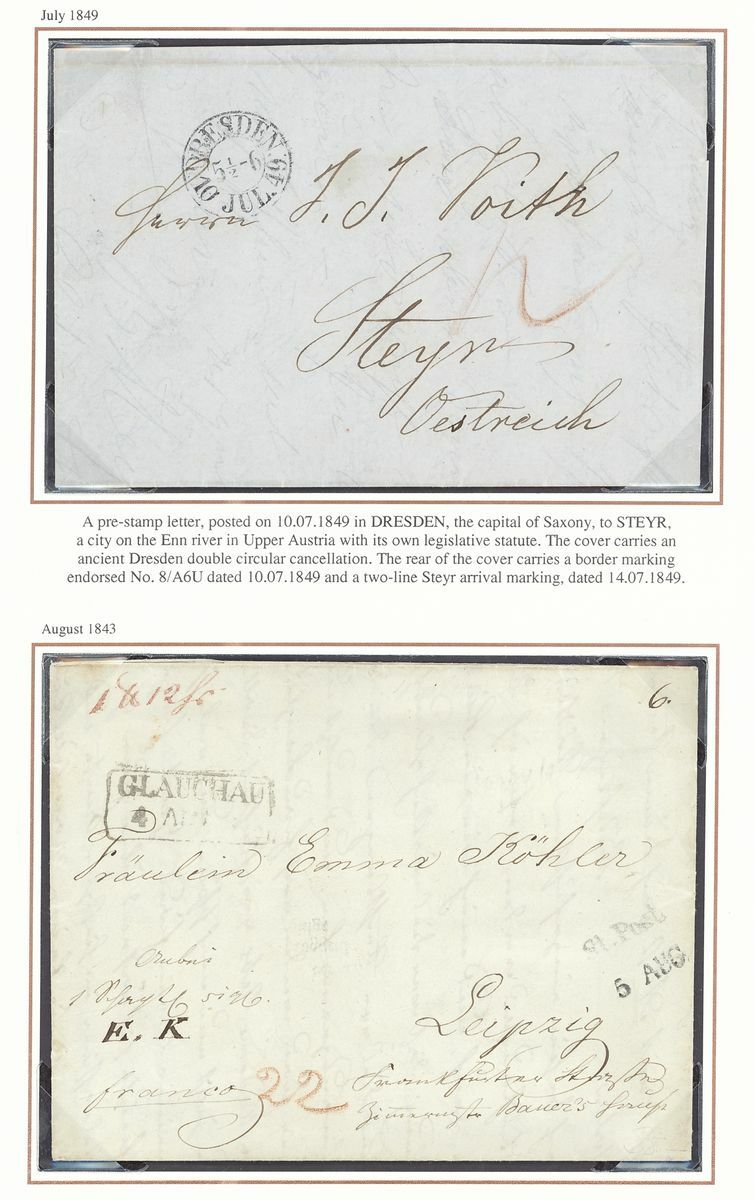 July 1849
DRESDEN 49
5½-6
10 JUL.
Herrn J. J. Voith
12
Steyr
Oestreich
A pre-stamp letter, posted on 10.07.1849 in DRESDEN, the capital of Saxony, to STEYR,
a city on the Enn river in Upper Austria with its own legislative statute. The cover carries an
ancient Dresden double circular cancellation. The rear of the cover carries a border marking
endorsed No. 8/A6U dated 10.07.1849 and a two-line Steyr arrival marking, dated 14.07.1849.
August 1843
6.
GLAUCHAU
4
Fräulein Emma Köhler
St. Post
5 AUG.
E. K
Leipzig
franco 22
Frankfurter Straße
Bauer's